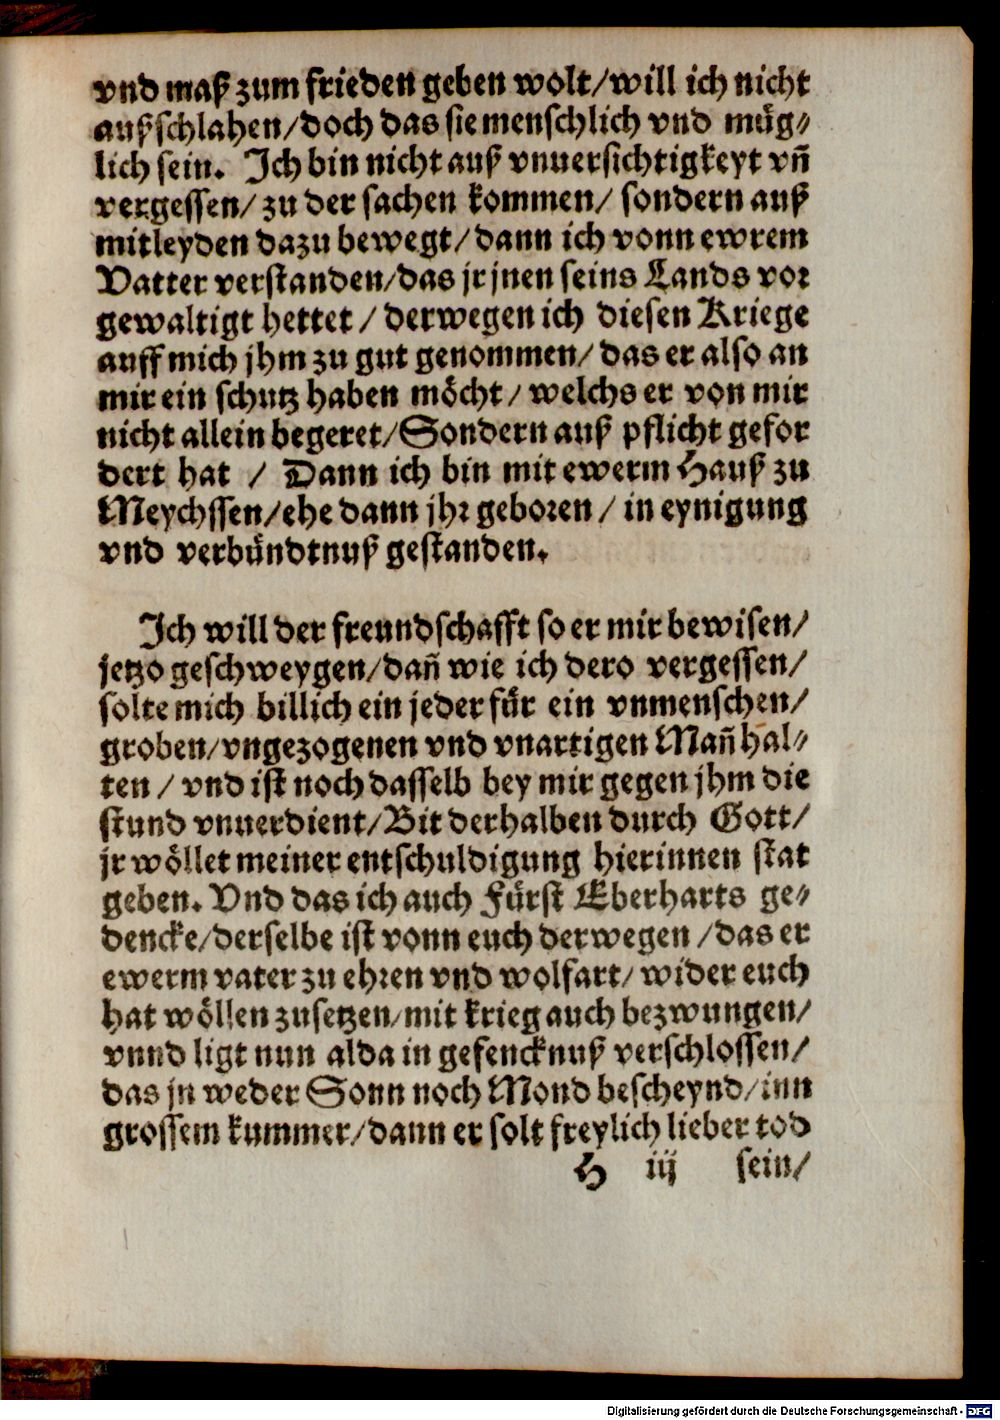 vnd maß zum frieden geben wolt/will ich nicht
außschlahen/doch das sie menschlich vnd müg⸗
lich sein. Ich bin nicht auß vnuersichtigkeyt vñ
vergessen/ zu der sachen kommen/ sondern auß
mitleyden dazu bewegt/ dann ich vonn ewrem
Vatter verstanden/das jr jnen seins Lands vor
gewaltigt hettet / derwegen ich diesen Kriege
auff mich jhm zu gut genommen/ das er also an
mir ein schutz haben möcht/ welchs er von mir
nicht allein begeret/Sondern auß pflicht gefor
dert hat / Dann ich bin mit ewerm Hauß zu
Meychssen/ehe dann jhr geboren / in eynigung
vnd verbündtnuß gestanden.
Ich will der freundschafft so er mir bewisen/
jetzo geschweygen/dañ wie ich dero vergessen/
solte mich billich ein jeder für ein vnmenschen/
groben/vngezogenen vnd vnartigen Mañ hal⸗
ten / vnd ist noch dasselb bey mir gegen jhm die
stund vnuerdient/Bit derhalben durch Gott/
jr wöllet meiner entschuldigung hierinnen stat
geben. Vnd das ich auch Fürst Eberharts ge⸗
dencke/derselbe ist vonn euch derwegen /das er
ewerm vater zu ehren vnd wolfart/ wider euch
hat wöllen zusetzen/mit krieg auch bezwungen/
vnnd ligt nun alda in gefencknuß verschlossen/
das jn weder Sonn noch Mond bescheynd/inn
grossem kummer/dann er solt freylich lieber tod
H iij sein/
Digitalisierung gefördert durch die Deutsche Forschungsgemeinschaft - DFG